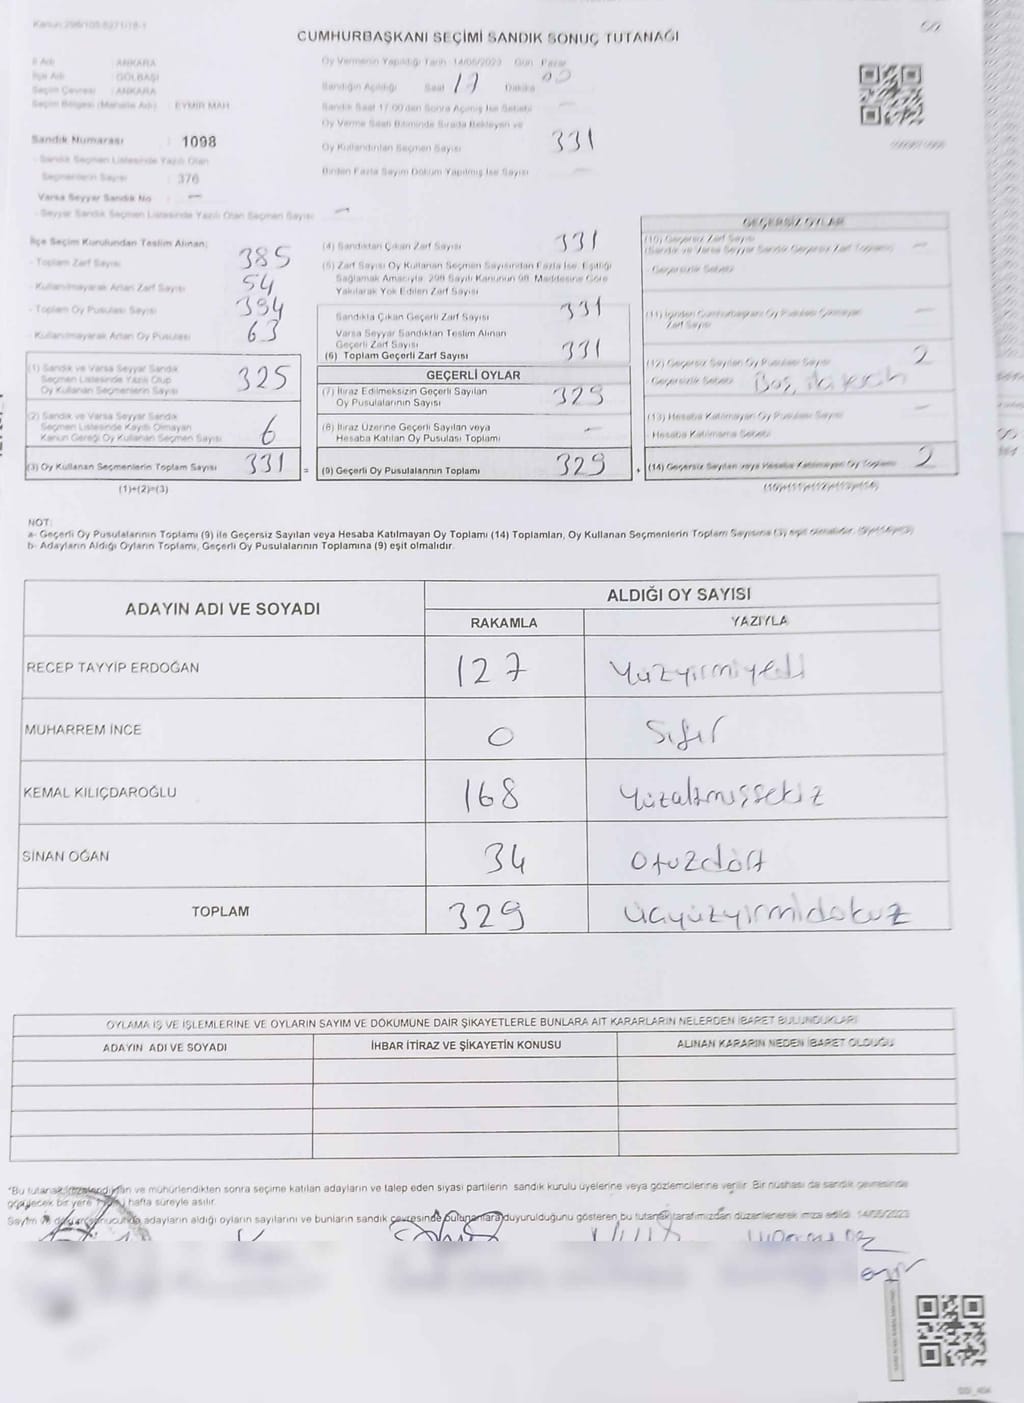 CUMHURBAŞKANI SEÇİMİ SANDIK SONUÇ TUTANAĞI
İl Adı : ANKARA
İlçe Adı : GÖLBAŞI
Seçim Çevresi : ANKARA
Seçim Bölgesi (Mahalle Adı) : EYMİR MAH
Sandık Numarası : 1098
- Sandık Seçmen Listesinde Yazılı Olan
Seçmenlerin Sayısı : 376
Varsa Seyyar Sandık No : —
- Seyyar Sandık Seçmen Listesinde Yazılı Olan Seçmen Sayısı : —
Oy Vermenin Yapıldığı Tarih 14/05/2023 Gün Pazar
Sandığın Açıldığı Saat 17 Dakika 00
Sandık Saat 17:00'den Sonra Açılmış İse Sebebi —
Oy Verme Saati Bitiminde Sırada Bekleyen ve
Oy Kullandırılan Seçmen Sayısı 331
Birden Fazla Sayım Döküm Yapılmış İse Sayısı —
İlçe Seçim Kurulundan Teslim Alınan;
- Toplam Zarf Sayısı 385
- Kullanılmayarak Artan Zarf Sayısı 54
- Toplam Oy Pusulası Sayısı 394
- Kullanılmayarak Artan Oy Pusulası 63
(1) Sandık ve Varsa Seyyar Sandık
Seçmen Listesinde Yazılı Olup
Oy Kullanan Seçmenlerin Sayısı 325
(2) Sandık ve Varsa Seyyar Sandık
Seçmen Listesinde Kayıtlı Olmayan
Kanun Gereği Oy Kullanan Seçmen Sayısı 6
(3) Oy Kullanan Seçmenlerin Toplam Sayısı 331
(1)+(2)=(3)
(4) Sandıktan Çıkan Zarf Sayısı 331
(5) Zarf Sayısı Oy Kullanan Seçmen Sayısından Fazla İse, Eşitliği
Sağlamak Amacıyla, 298 Sayılı Kanunun 98. Maddesine Göre
Yakılarak Yok Edilen Zarf Sayısı
Sandıkta Çıkan Geçerli Zarf Sayısı 331
Varsa Seyyar Sandıktan Teslim Alınan
Geçerli Zarf Sayısı
(6) Toplam Geçerli Zarf Sayısı 331
GEÇERLİ OYLAR
(7) İtiraz Edilmeksizin Geçerli Sayılan
Oy Pusulalarının Sayısı 329
(8) İtiraz Üzerine Geçerli Sayılan veya
Hesaba Katılan Oy Pusulası Toplamı —
= (9) Geçerli Oy Pusulalarının Toplamı 329
GEÇERSİZ OYLAR
(10) Geçersiz Zarf Sayısı
(Sandık ve Varsa Seyyar Sandık Geçersiz Zarf Toplamı) —
- Geçersizlik Sebebi
Zarf Sayısı —
(12) Geçersiz Sayılan Oy Pusulası Sayısı 2
- Geçersizlik Sebebi Boş,
(13) Hesaba Katılmayan Oy Pusulası Sayısı —
Hesaba Katılmama Sebebi
+ (14) Geçersiz Sayılan veya Hesaba Katılmayan Oy Toplamı 2
(10)+(11)+(12)+(13)=(14)
NOT:
a- Geçerli Oy Pusulalarının Toplamı (9) ile Geçersiz Sayılan veya Hesaba Katılmayan Oy Toplamı (14) Toplamları, Oy Kullanan Seçmenlerin Toplam Sayısına (3) eşit olmalıdır. (9)+(14)=(3)
b- Adayların Aldığı Oyların Toplamı, Geçerli Oy Pusulalarının Toplamına (9) eşit olmalıdır.
ADAYIN ADI VE SOYADI ALDIĞI OY SAYISI
RAKAMLA YAZIYLA
RECEP TAYYİP ERDOĞAN 127 Yüzyirmiyedi
MUHARREM İNCE 0 Sıfır
KEMAL KILIÇDAROĞLU 168 Yüzaltmışsekiz
SİNAN OĞAN 34 Otuzdört
TOPLAM 329 Üçyüzyirmidokuz
OYLAMA İŞ VE İŞLEMLERİNE VE OYLARIN SAYIM VE DÖKÜMÜNE DAİR ŞİKAYETLERLE BUNLARA AİT KARARLARIN NELERDEN İBARET BULUNDUKLARI
ADAYIN ADI VE SOYADI İHBAR İTİRAZ VE ŞİKAYETİN KONUSU ALINAN KARARIN NEDEN İBARET OLDUĞU
*Bu tutanak imzalandıktan ve mühürlendikten sonra seçime katılan adayların ve talep eden siyasi partilerin sandık kurulu üyelerine veya gözlemcilerine verilir. Bir nüshası da sandık çevresinde
görülecek bir yere hafta süreyle asılır.
Sayım ve döküm sonucunda adayların aldığı oyların sayılarını ve bunların sandık çevresinde bulunanlara duyurulduğunu gösteren bu tutanak tarafımızdan düzenlenerek imza edildi. 14/05/2023